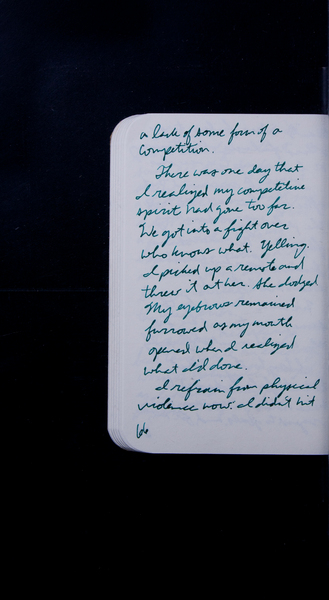 a lack of some form of a
competition.
There was one day that
I realized my competitive
spirit had gone too far.
We got into a fight over
who knows what. Yelling.
I picked up a remote and
threw it at her. She dodged
My eyebrows remained
furrowed as my mouth
opened when I realized
what I'd done.
I refrain from physical
violence now. I didn't hit
66